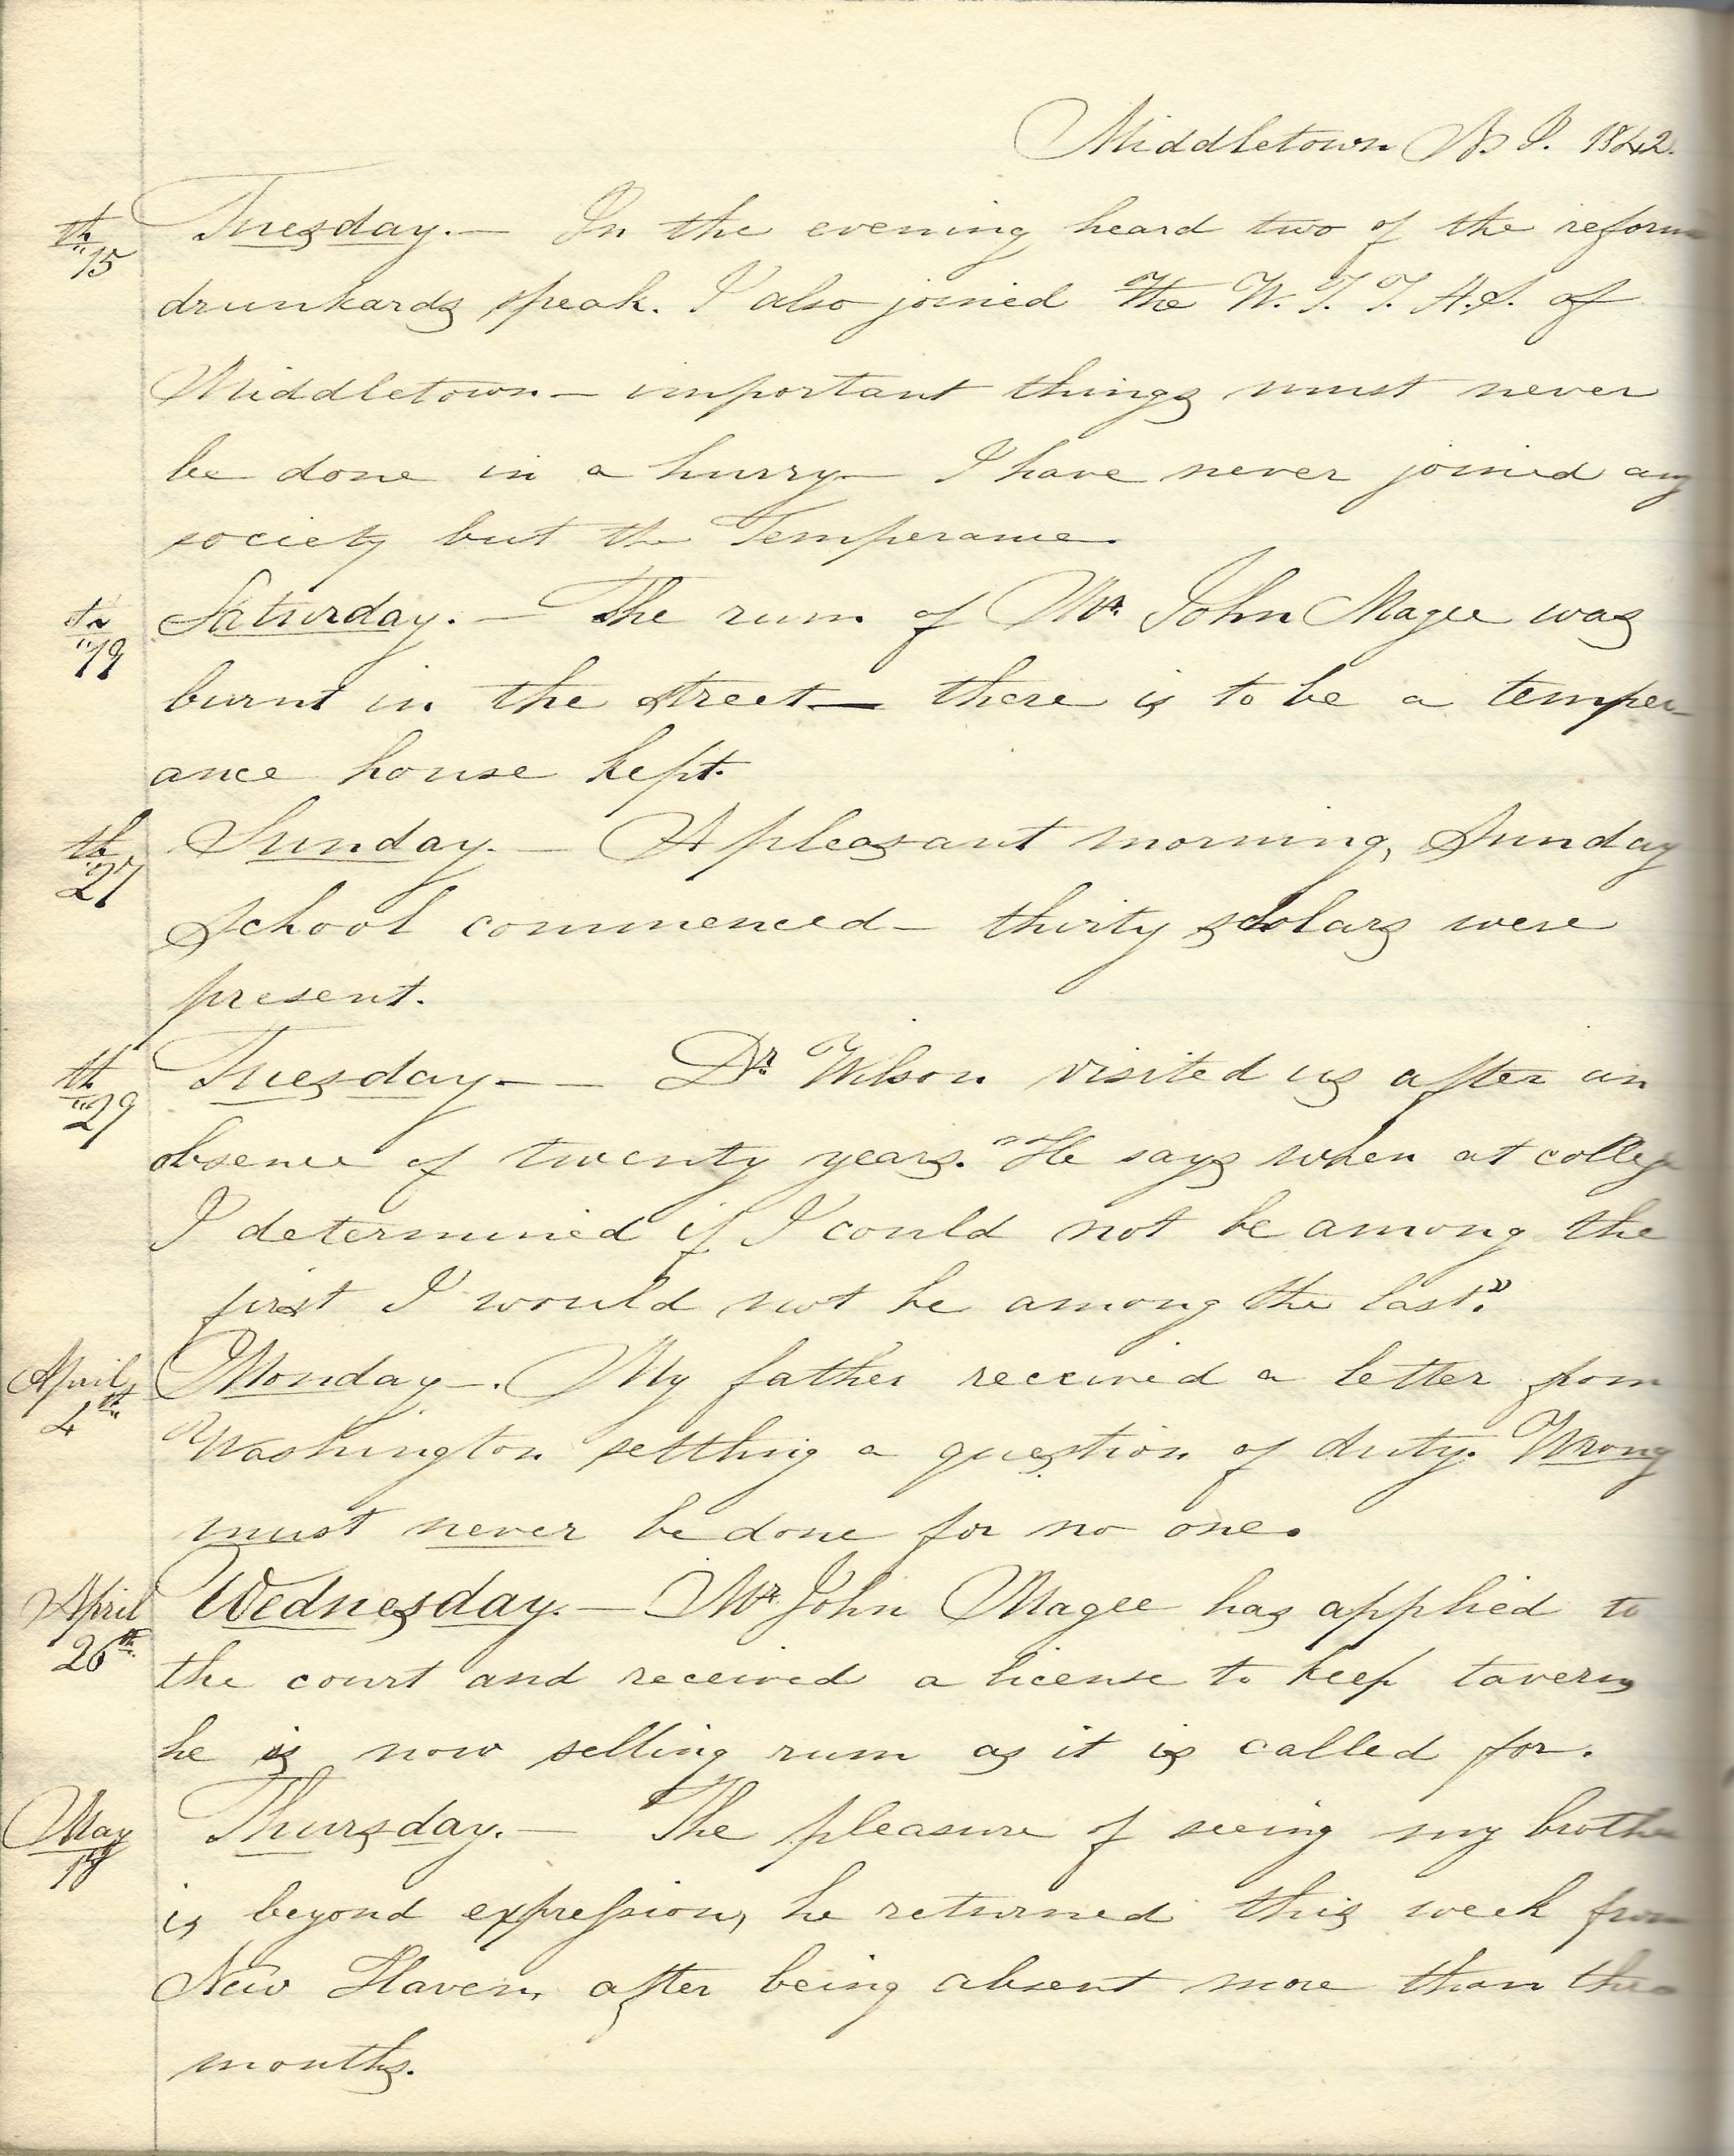 Middletown N. J. 1842.
th 15 Tuesday.— In the evening heard two of the reform
drunkards speak. I also joined the W. T. T. A. S. of
Middletown — important things must never
be done in a hurry — I have never joined any
society but the Temperance.
th 19 Saturday. — The rum of Mr. John Magee was
burnt in the street — there is to be a temper-
ance house kept.
th 27 Sunday. — A pleasant morning, Sunday
School commenced — thirty scholars were
present.
th 29 Tuesday — — Dr. Wilson visited us after an
absence of twenty years. "He says when at college
I determined if I could not be among the
first I would not be among the last."
April 4th Monday —. My father received a letter from
Washington settling a question of duty. Wrong
must never be done for no one.
April 26th Wednesday. — Mr. John Magee has applied to
the court and received a license to keep tavern,
he is now selling rum as it is called for.
May Thursday. — The pleasure of seeing my brother
is beyond expression, he returned this week from
New Haven, after being absent more than
months.